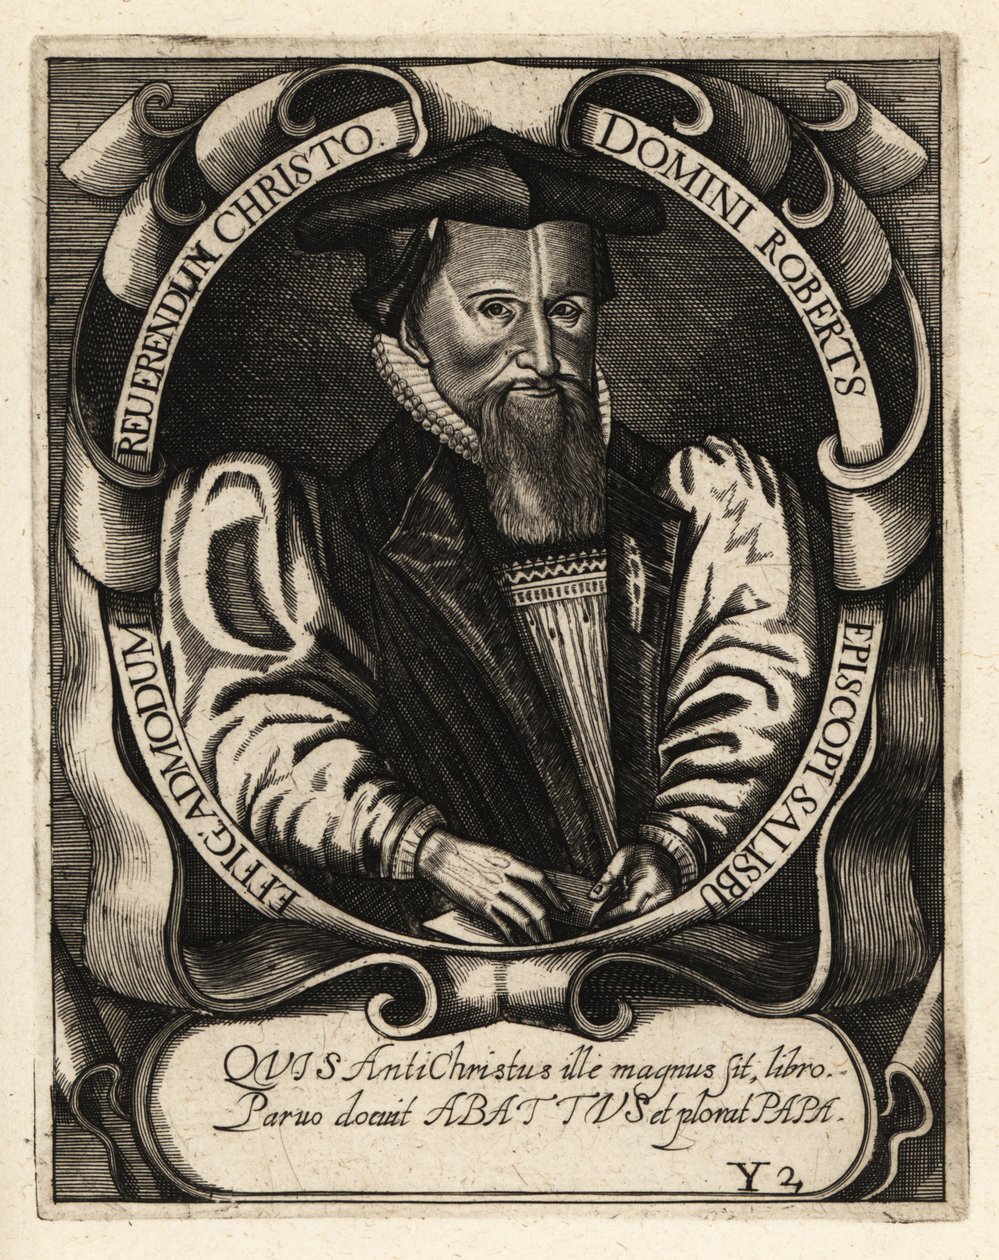 EFFIG: ADMODUM
REUERENDUM CHRISTO.
DOMINI ROBERTS
EPISCOPI SALISBU
QVIS AntiChristus ille magnus sit, libro.
Paruo docuit ABATTVS et plorat PAPA.
Y 2,